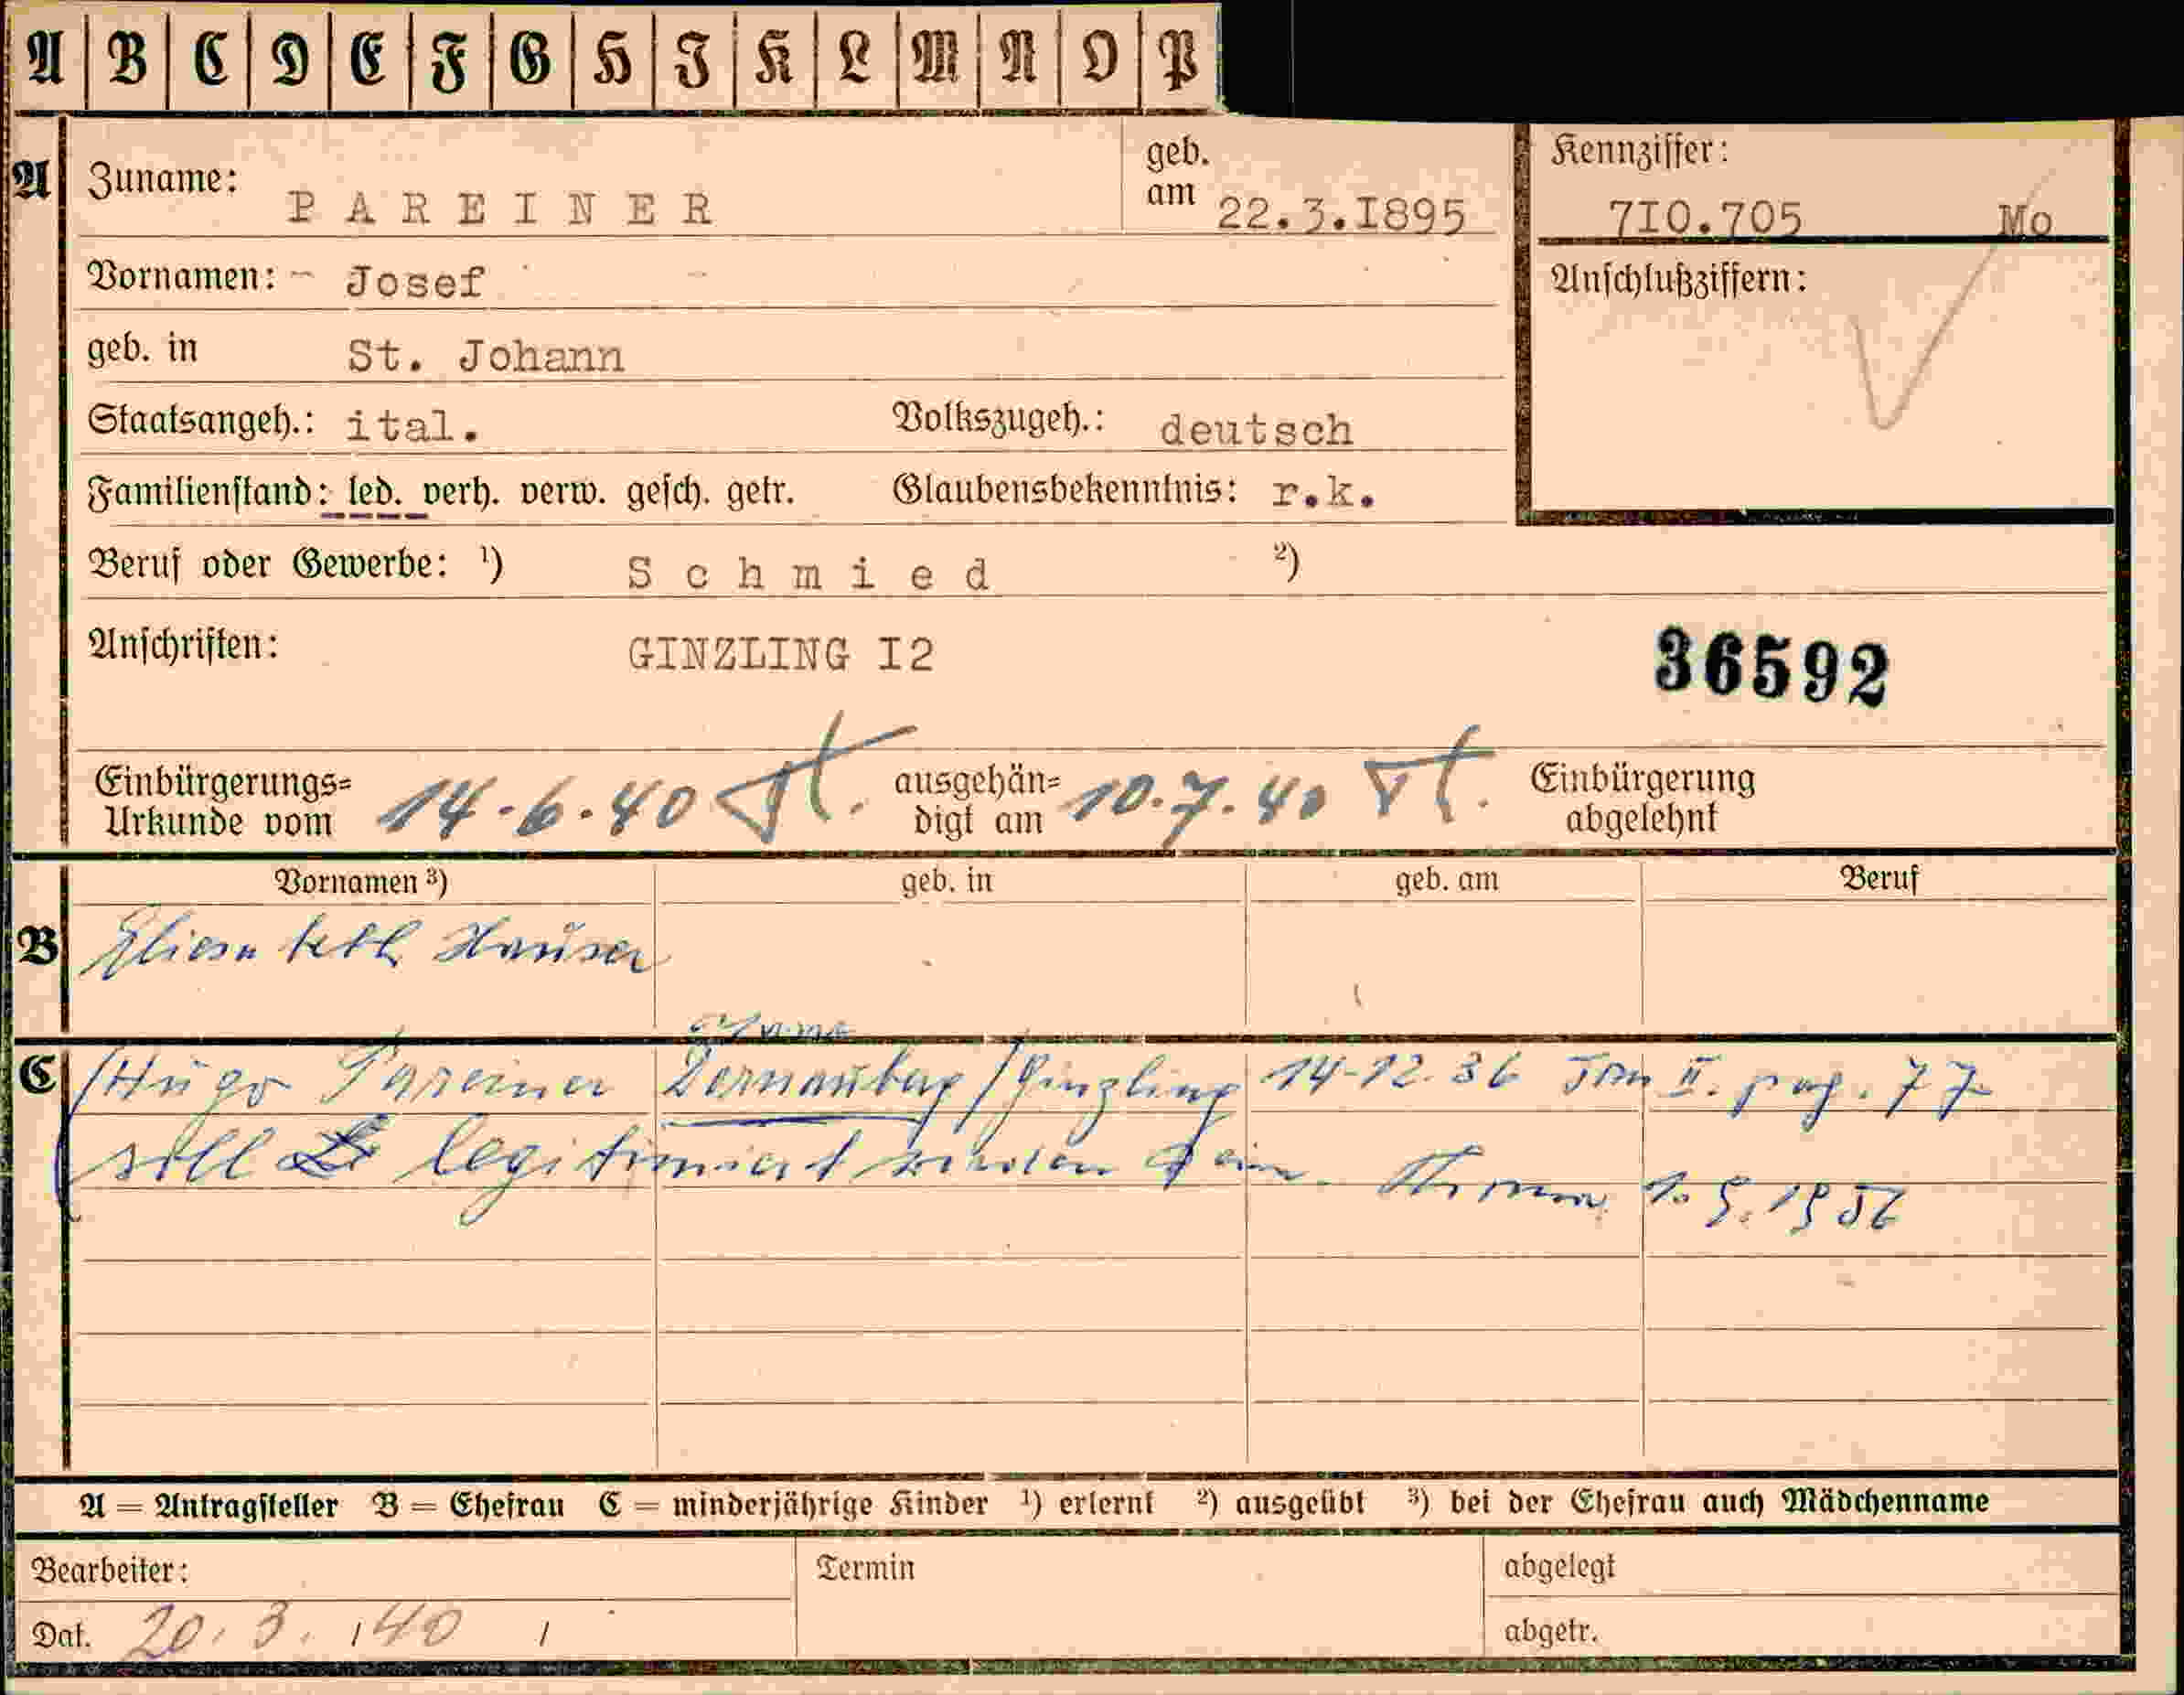 A B C D E F G H I K L M N O P
A Zuname: PAREINER geb. am 22.3.I895 Kennziffer: 7I0.705 Mo
Vornamen: - Josef - Anschlußziffern:
geb. in St. Johann
Staatsangeh.: ital. Volkszugeh.: deutsch
Familienstand: led. verh. verw. gesch. getr. Glaubensbekenntnis: r.k.
Beruf oder Gewerbe: ¹) Schmied ²)
Anschriften: GINZLING I2 36592
Einbürgerungs= ausgehän= Einbürgerung
Urkunde vom 14.6.40 digt am 10.7.40 abgelehnt
Vornamen ³) geb. in geb. am Beruf
B Hauser
C Hugo Pareiner Dornauberg/Ginzling 14-12.36 II. pag. 77
soll legitimiert worden sein. 1956
A = Antragsteller B = Ehefrau C = minderjährige Kinder ¹) erlernt ²) ausgeübt ³) bei der Ehefrau auch Mädchenname
Bearbeiter: Termin abgelegt
Dat. 20.3.40 abgetr.